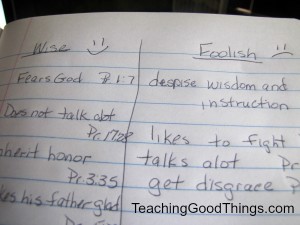 Wise
Fears God Pr. 1:7
Does not talk alot
Pr. 17:28
inherit honor
Pr 3:35
makes his father glad
Foolish
despise wisdom and
instruction
likes to fight
talks alot Pr
get disgrace P
TeachingGoodThings.com